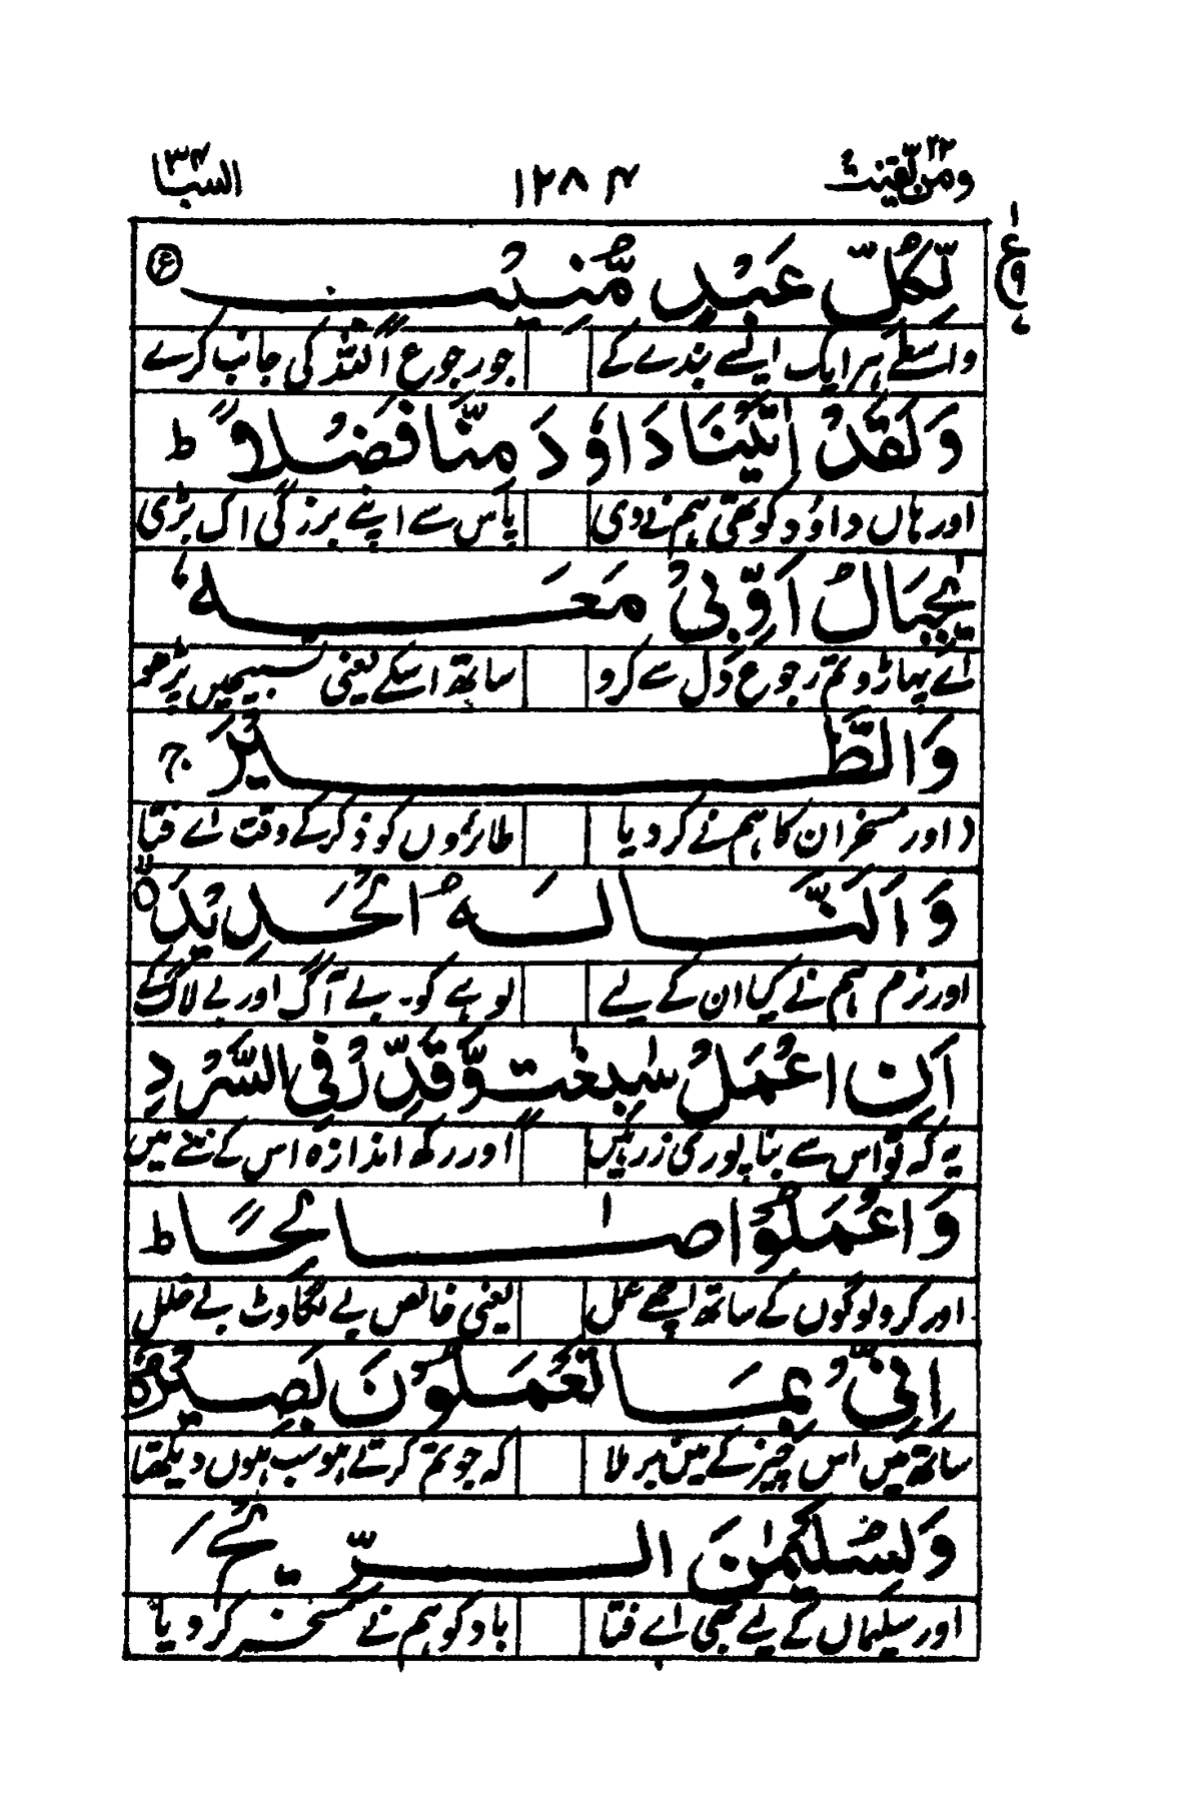 ومن یقنت ۲۲ ۱۲۸۴ السبا ۳۴
لِّكُلِّ عَبْدٍ مُّنِيْبٍ
واسطے ہر ایک ایسے بندے کے جو رجوع اللہ کی جانب کرے
وَلَقَدْ اٰتَيْنَا دَاوٗدَ مِنَّا فَضْلًا ؕ
اور ہاں داؤد کو بھی ہم نے دی پاس سے اپنے بزرگی اک بڑی
يٰجِبَالُ اَوِّبِىْ مَعَهٗ
اے پہاڑو تم رجوع دل سے کرو ساتھ اسکے یعنی تسبیحیں پڑھو
وَالطَّيْرَ ۚ
اور مسخر ان کا ہم نے کر دیا طائروں کو ذکر کے وقت اے فتا
وَاَلَنَّا لَهُ الْحَدِيْدَ ۙ
اور نرم ہم نے کیا ان کے لیے لوہے کو۔ بے آگ اور بے لاگ کے
اَنِ اعْمَلْ سٰبِغٰتٍ وَّقَدِّرْ فِى السَّرْدِ
یہ کہ تو اس سے بنا پوری زرہیں اور رکھ اندازہ اس کے بننے میں
وَاعْمَلُوْا صَالِحًا ؕ
اور کرو لوگوں کے ساتھ اچھے عمل یعنی خالص بے لگاوٹ بے خلل
اِنِّىْ بِمَا تَعْمَلُوْنَ بَصِيْرٌ
ساتھ میں اس چیز کے میں برملا کہ جو تم کرتے ہو سب ہوں دیکھتا
وَلِسُلَيْمٰنَ الرِّيْحَ
اور سلیماں کے لیے بھی اے فتا باد کو ہم نے مسخر کر دیا